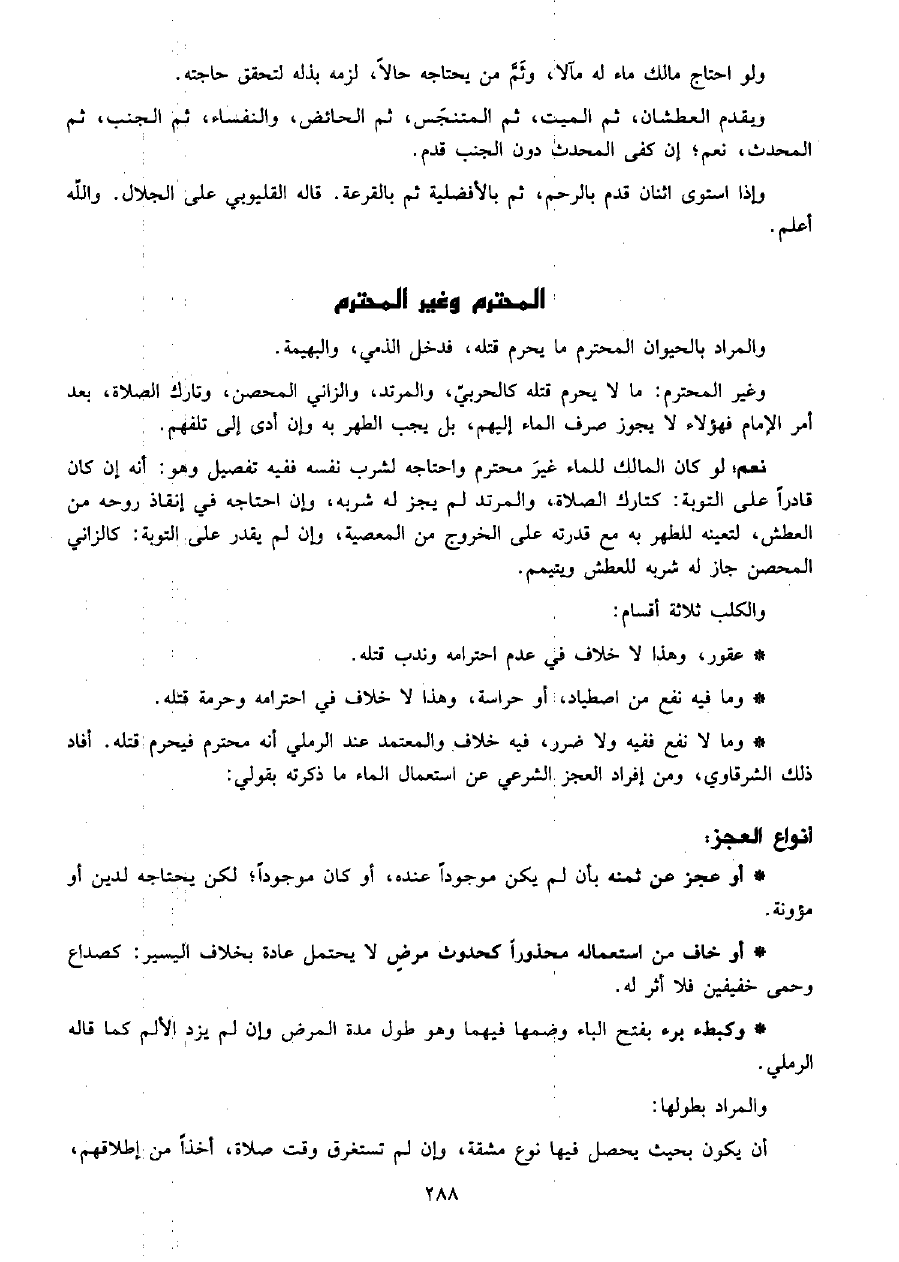 ولو احتاج مالك ماء له مآلا، وثَمَّ من يحتاجه حالاً، لزمه بذله لتحقق حاجته.
ويقدم العطشان، ثم الميت، ثم المتنجّس، ثم الحائض، والنفساء، ثم الجنب، ثم
المحدث، نعم؛ إن كفى المحدث دون الجنب قدم.
وإذا استوى اثنان قدم بالرحم، ثم بالأفضلية ثم بالقرعة. قاله القليوبي على الجلال. واللّه
أعلم.
المحترم وغير المحترم
والمراد بالحيوان المحترم ما يحرم قتله، فدخل الذمي، والبهيمة.
وغير المحترم: ما لا يحرم قتله كالحربيّ، والمرتد، والزاني المحصن، وتارك الصلاة، بعد
أمر الإمام فهؤلاء لا يجوز صرف الماء إليهم، بل يجب الطهر به وإن أدى إلى تلفهم.
نعم؛ لو كان المالك للماء غيرَ محترم واحتاجه لشرب نفسه ففيه تفصيل وهو: أنه إن كان
قادراً على التوبة: كتارك الصلاة، والمرتد لم يجز له شربه، وإن احتاجه في إنقاذ روحه من
العطش، لتعينه للطهر به مع قدرته على الخروج من المعصية، وإن لم يقدر على التوبة: كالزاني
المحصن جاز له شربه للعطش ويتيمم.
والكلب ثلاثة أقسام:
* عقور، وهذا لا خلاف في عدم احترامه وندب قتله.
* وما فيه نفع من اصطياد، أو حراسة، وهذا لا خلاف في احترامه وحرمة قتله.
* وما لا نفع ففيه ولا ضرر، فيه خلاف والمعتمد عند الرملي أنه محترم فيحرم قتله. أفاد
ذلك الشرقاوي، ومن إفراد العجز الشرعي عن استعمال الماء ما ذكرته بقولي:
أنواع العجز:
* أو عجز عن ثمنه بأن لم يكن موجوداً عنده، أو كان موجوداً؛ لكن يحتاجه لدين أو
مؤونة.
* أو خاف من استعماله محذوراً كحدوث مرضٍ لا يحتمل عادة بخلاف اليسير: كصداع
وحمى خفيفين فلا أثر له.
* وكبطء برء بفتح الباء وضمها فيهما وهو طول مدة المرض وإن لم يزد الألم كما قاله
الرملي.
والمراد بطولها:
أن يكون بحيث يحصل فيها نوع مشقة، وإن لم تستغرق وقت صلاة، أخذاً من إطلاقهم،
٢٨٨